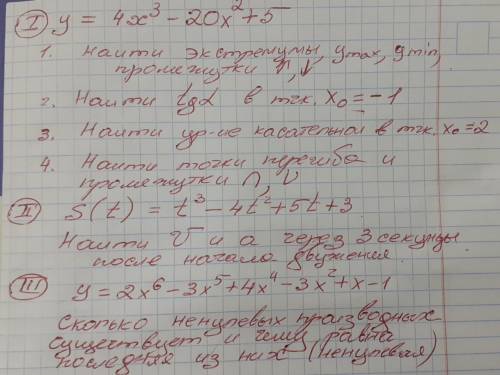 I y = 4x³ - 20x² + 5
1. Найти экстремумы, ymax, ymin,
промежутки ↑, ↓
2. Найти tgα в тчк. x₀ = -1
3. Найти ур-ие касательной в тчк. x₀ = 2
4. Найти точки перегиба и
промежутки ∩, ∪
II S(t) = t³ - 4t² + 5t + 3
Найти v и a через 3 секунды
после начала движения
III y = 2x⁶ - 3x⁵ + 4x⁴ - 3x² + x - 1
Сколько ненулевых производных
существует и чему равна
последняя из них (ненулевая)